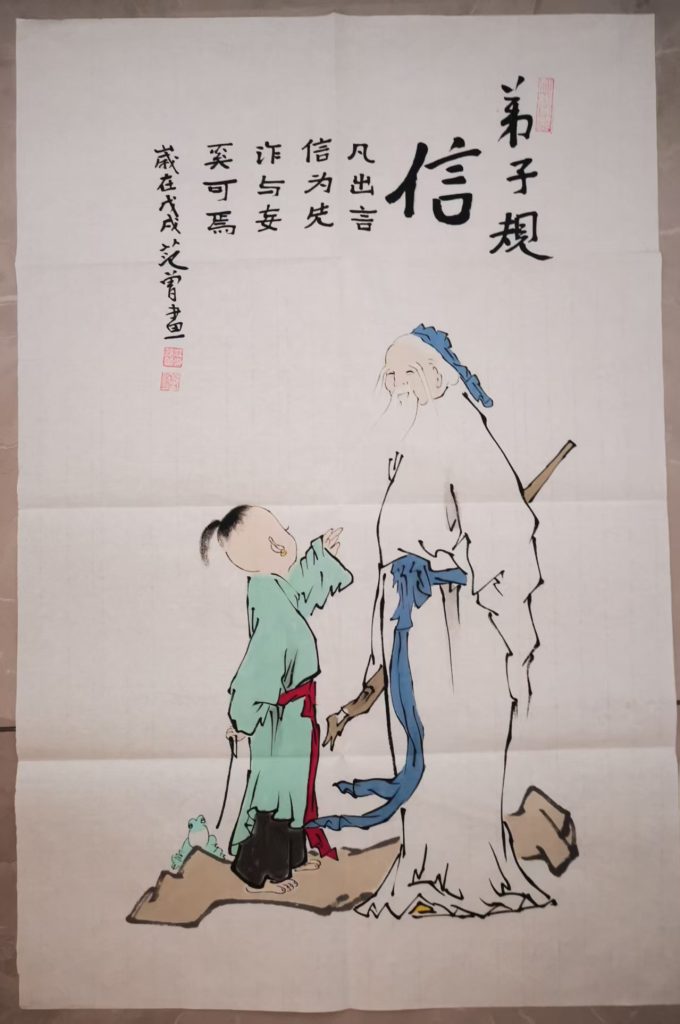 弟子规
信
凡出言
信为先
诈与妄
奚可焉
岁在戊戌范曾画